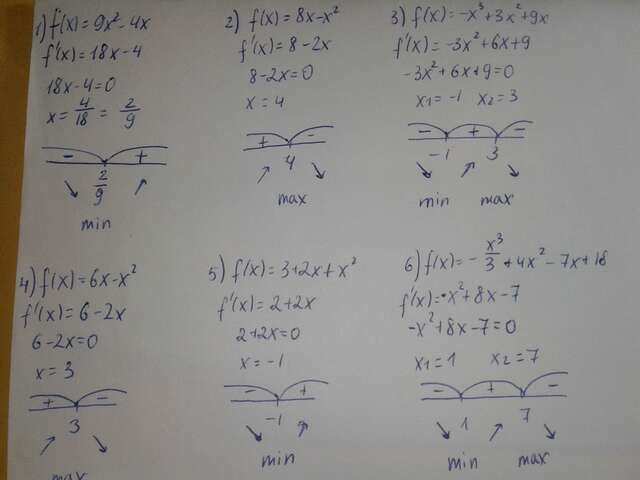 1) f(x) = 9x² - 4x
f'(x) = 18x - 4
18x - 4 = 0
x = 4/18 = 2/9
- +
2/9
↘ ↗
min
2) f(x) = 8x - x²
f'(x) = 8 - 2x
8 - 2x = 0
x = 4
+ -
4
↗ ↘
max
3) f(x) = -x³ + 3x² + 9x
f'(x) = -3x² + 6x + 9
-3x² + 6x + 9 = 0
x₁ = -1 x₂ = 3
- + -
-1 3
↘ ↗ ↘
min max
4) f(x) = 6x - x²
f'(x) = 6 - 2x
6 - 2x = 0
x = 3
+ -
3
↗ ↘
max
5) f(x) = 3 + 2x + x²
f'(x) = 2 + 2x
2 + 2x = 0
x = -1
- +
-1
↘ ↗
min
6) f(x) = - x³/3 + 4x² - 7x + 18
f'(x) = -x² + 8x - 7
-x² + 8x - 7 = 0
x₁ = 1 x₂ = 7
- + -
1 7
↘ ↗ ↘
min max